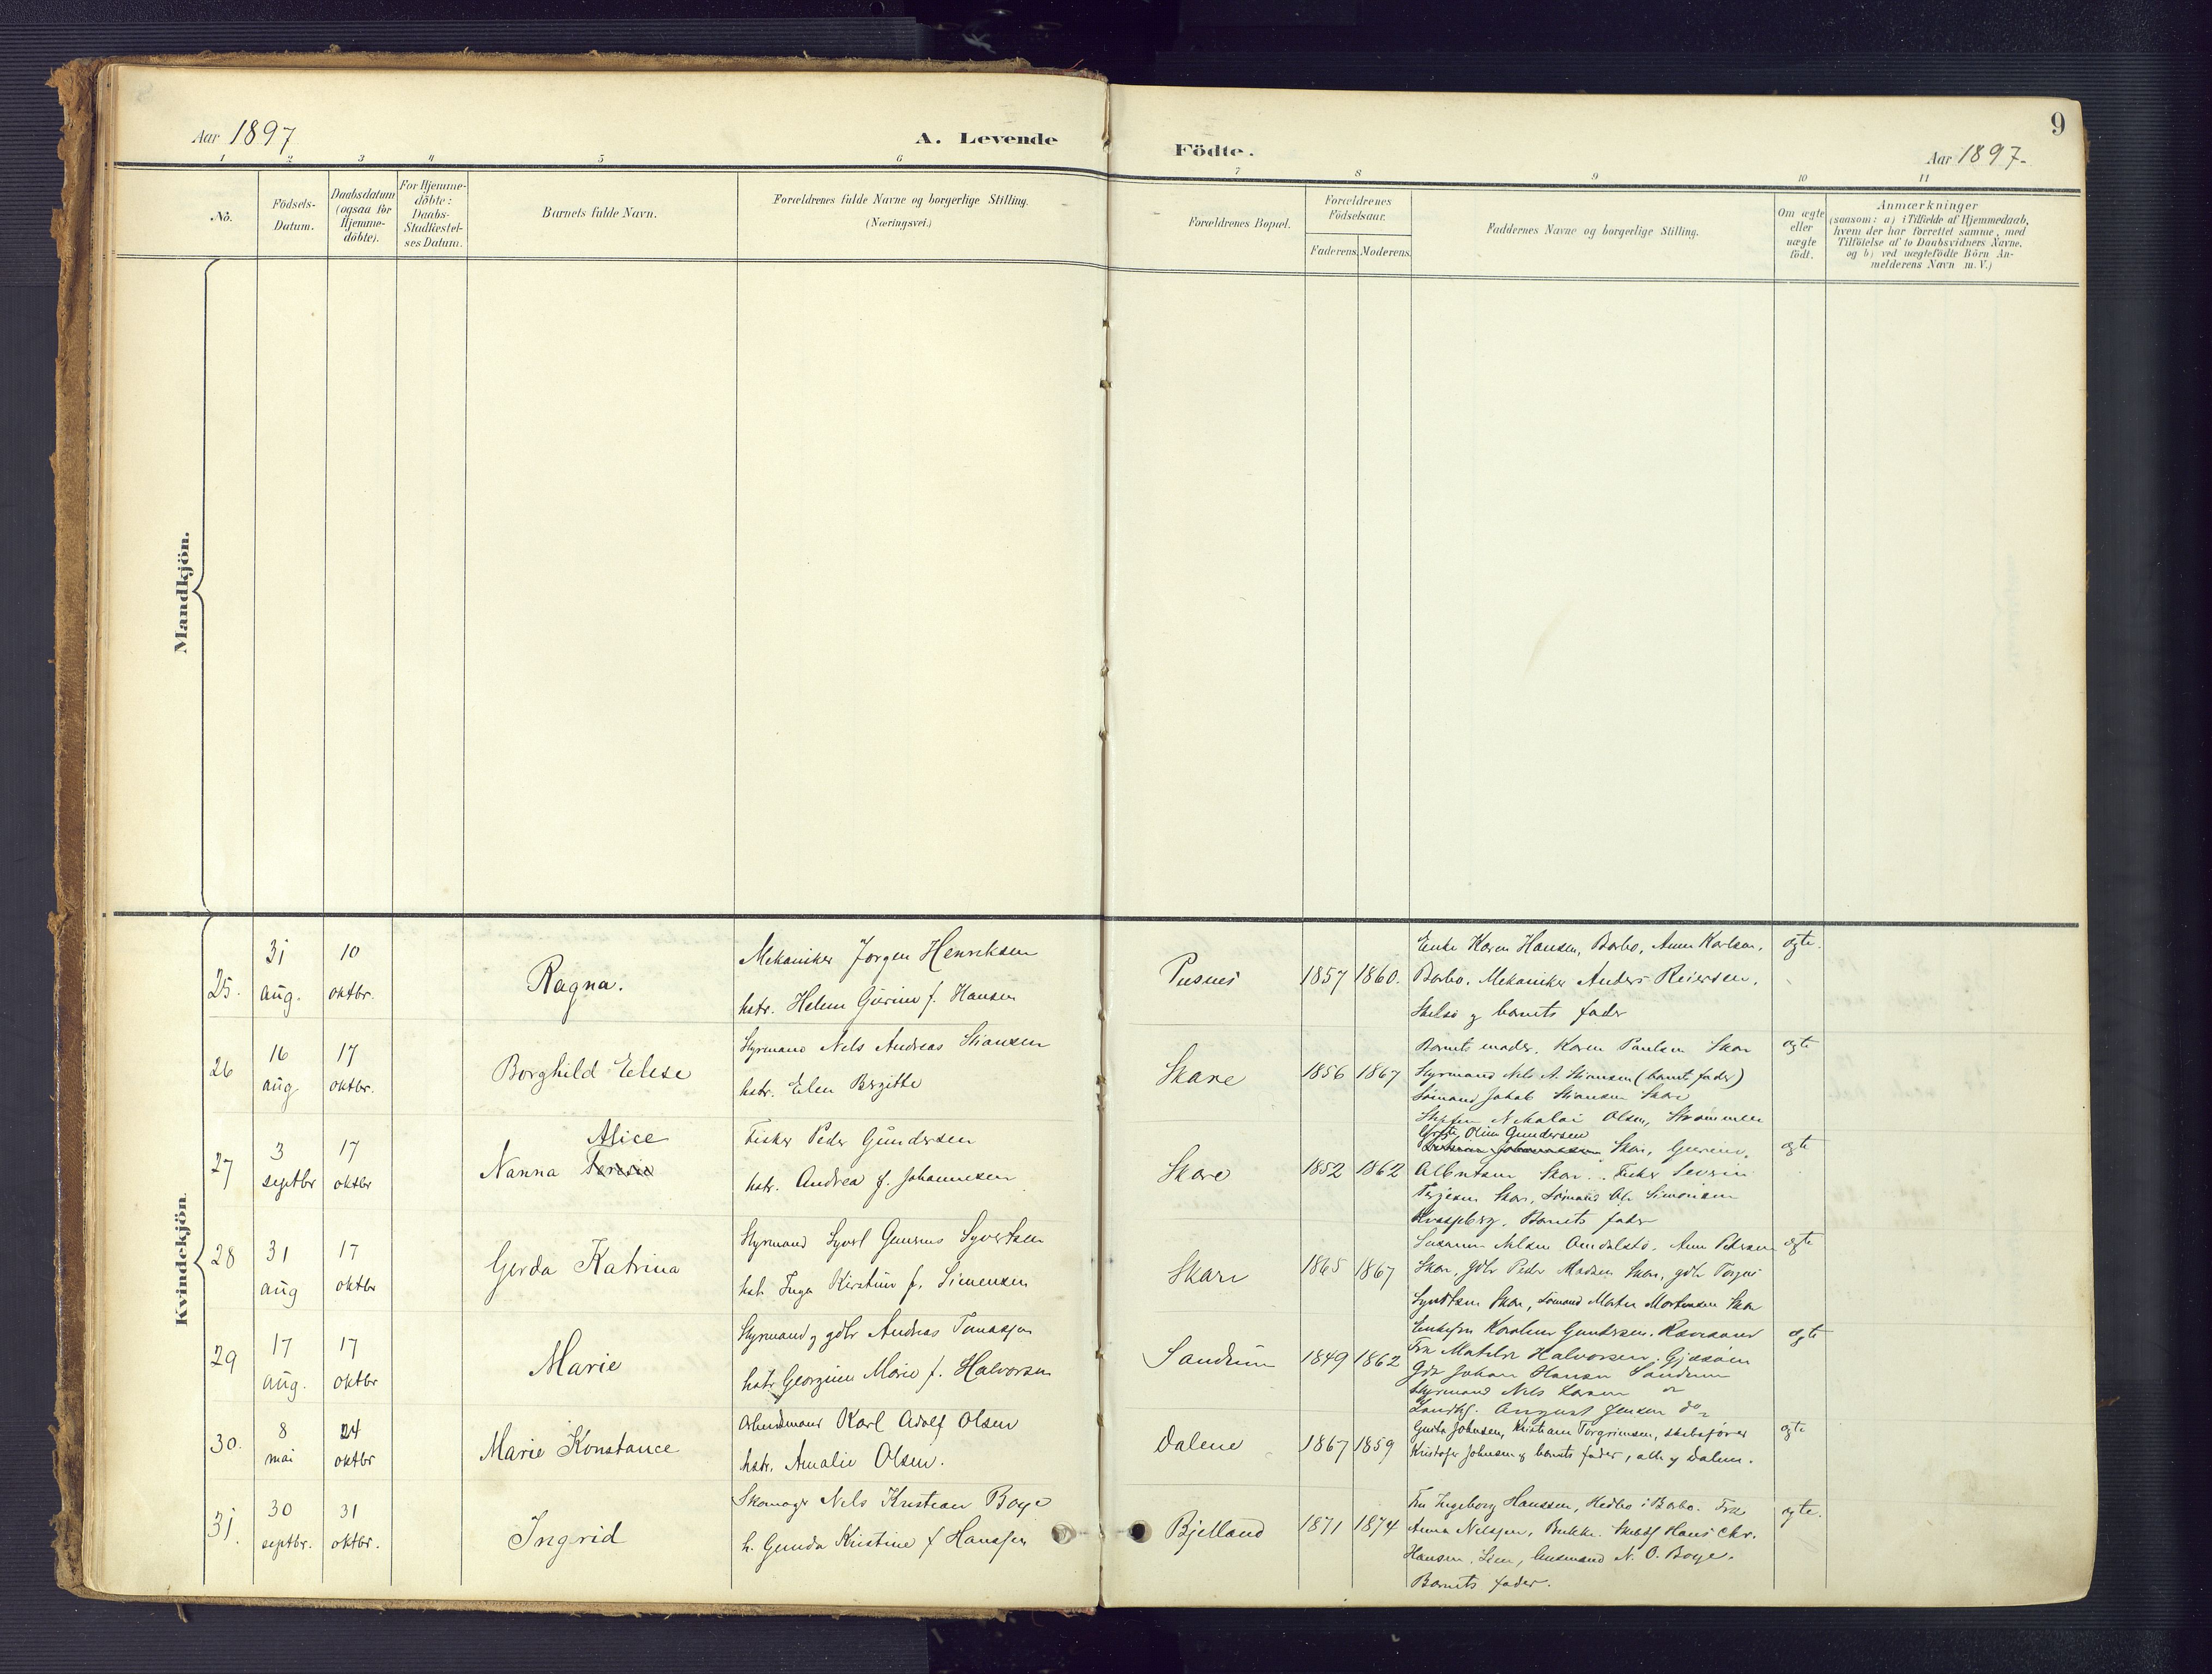 Aar 1897
A. Levende Födte.
Aar 1897.
9
1 2 3 4 5 6 7 8 9 10 11
No.
Födsels-
Datum.
Daabsdatum
(ogsaa for
Hjemme-
döbte).
For Hjemme-
döbte:
Daabs-
Stadfæstel-
ses Datum.
Barnets fulde Navn.
Forældrenes fulde Navne og borgerlige Stilling.
(Næringsvei.)
Forældrenes Bopæl.
Forældrenes
Födselsaar.
Faderens. Moderens.
Faddernes Navne og borgerlige Stilling.
Om ægte
eller
uægte
födt.
Anmærkninger
(saasom: a) i Tilfælde af Hjemmedaab,
hvem der har forrettet samme, med
Tilföielse af to Daabsvidners Navne.
og b) ved uægtefödte Börn An-
melderens Navn m. V.)
Mandkjön.
Kvindekjön
25.
31
aug.
10
oktbr.
Ragna.
Mekaniker Jørgen Henriksen
hstr. Helene Gurine f. Hansen
Pusnes
1857 1860.
Enke Karen Hansen, Barbo, Anne Karlsen,
Barbo. Mekaniker Anders Reiersen,
og barnets fader
ægte.
26
16
aug
17
oktbr.
Borghild Elise
Styrmand Nils Andreas Stiansen
hstr. Elen Birgitte
Skare
1856 1867
Barnets moder. Karen Paulsen Skare
Styrmand Nils A. Stiansen (barnets fader)
Sømand Jakob Stiansen Skare
Nikolai Olsen, Strømmen
ægte
27
3
septbr
17
oktbr
Alice
Nanna
Fisker Peder Gundersen
hstr. Andrea f. Johannesen
Skare
1852 1862
Oline Gundersen
Skare,
Skare. Fisker Severin
Terjesen Skare, Sømand Ole Simonsen
Barnets fader
ægte
28
31
aug
17
oktbr
Gerda Katrina
Styrmand Syvert Syvertsen
hst. Inga Kirstine f. Simensen
Skare
1865 1867
Nilsen Omdalsto. Ane Petersen
Skare, gdbr Peder Madsen Skare, gdbr
Syvertsen Skare, sømand Morten Mortensen Skare
ægte
29
17
aug.
17
oktbr
Marie
Styrmand og gdbr Andreas Tomassen
hstr Georgine Marie f. Halvorsen
Sandum
1849 1862
Karoline Gundersen.
Fru Matilde Halvorsen,
Gdbr Johan Hansen Sandum
Styrmand Nils Larsen
August Jensen
ægte
30.
8
mai
24
oktbr
Marie Konstance
Karl Adolf Olsen
hstr. Amalie Olsen.
Dalene
1867 1859
Johnsen, Kristiane Torgrimsen, skibsfører
Kristofer Johnsen & barnets fader, alle af Dalene.
ægte
31.
30
septbr.
31
oktbr.
Ingrid
Skomager Nils Kristian Boye
h. Gunda Kristine f Hanssen
Bjelland
1871 1874
Fru Ingeborg Hanssen, i Barbo. Fru
Anna Nilssen, Hans Chr.
Hansen, husmand N. O. Boye.
Barnets fader.
ægte.